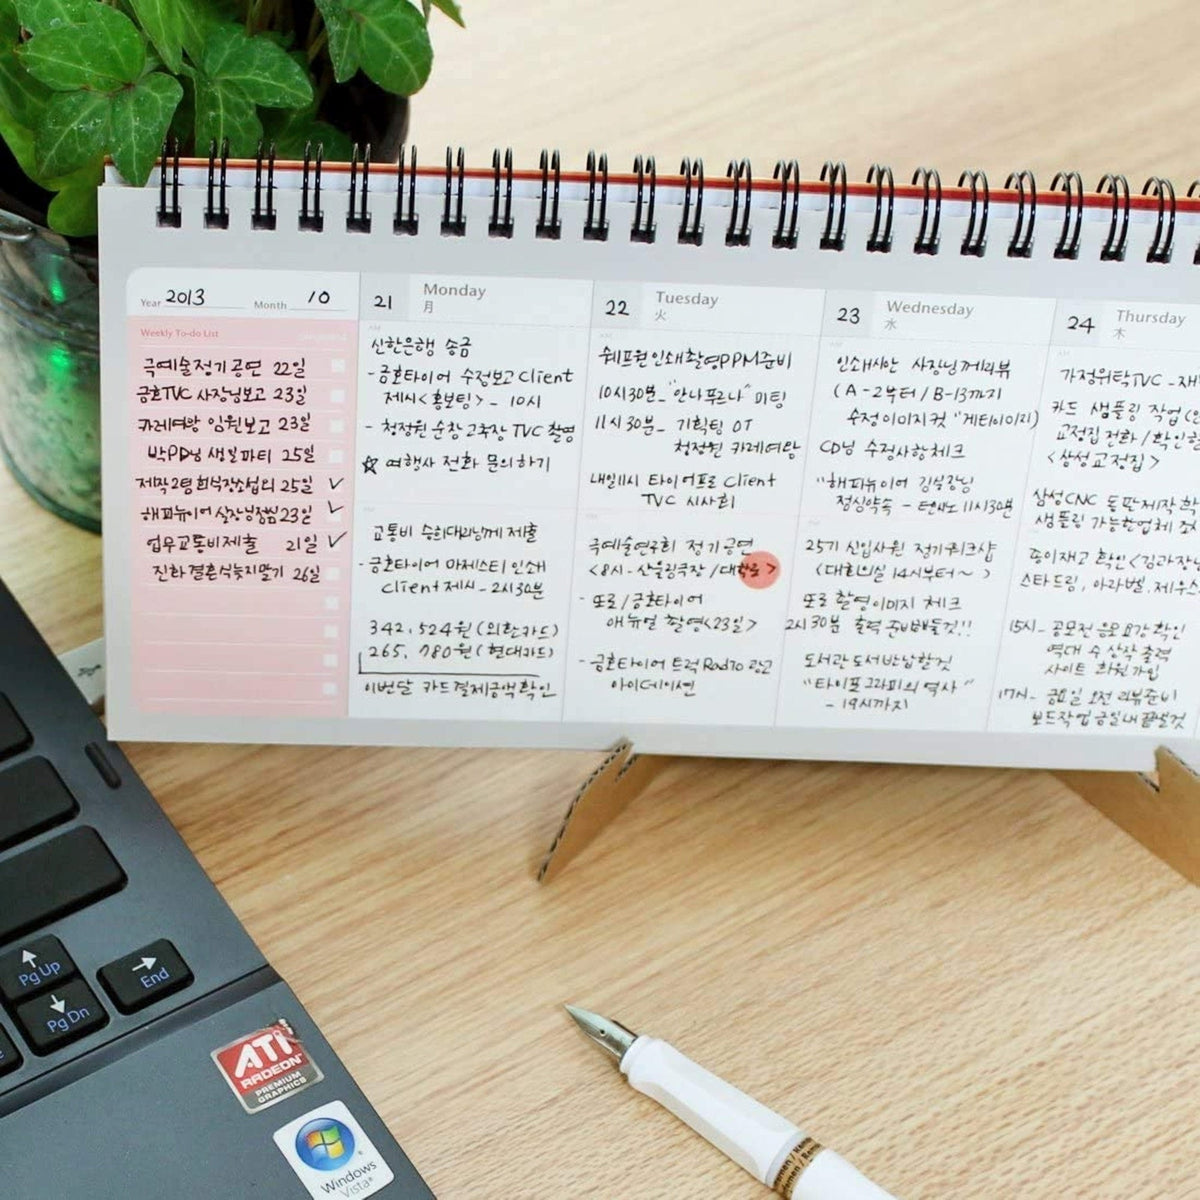 Year 2013 Month 10
Weekly To-do List
극예술정기공연 22일
금호TVC 사장님보고 23일
카레여왕 임원보고 23일
박PD님 생일파티 25일
제작2팀 회식장소섭외 25일 ✓
해피뉴이어 실장님점심 23일 ✓
업무교통비제출 21일 ✓
진화 결혼식잊지말기 26일
21 Monday
月
신한은행 송금
- 금호타이어 수정보고 Client
제시<홍보팀> - 10시
- 청정원 순창고추장 TVC 촬영
☆ 여행사 전화 문의하기
교통비 승희대리님께 제출
- 금호타이어 마제스티 인쇄
Client 제시 - 2시30분
342,524원 (외환카드)
265,780원 (현대카드)
이번달 카드결제금액확인
22 Tuesday
火
쉐프원인쇄촬영PPM준비
10시30분_ "안나푸르나" 미팅
11시30분_ 기획팀 OT
청정원 카레여왕
내일11시 타이어프로 Client
TVC 시사회
극예술연구회 정기공연
<8시 - 산울림극장 / 대학로>
- 또로/금호타이어
애뉴얼 촬영<23일>
- 금호타이어 트럭 Radio 광고
아이데이션
23 Wednesday
水
인쇄시안 사장님께리뷰
(A-2부터 / B-13까지
수정이미지컷 "게티이미지)
CD님 수정사항체크
"해피뉴이어 김실장님
점심약속 - 11시30분
25기 신입사원 정기워크샵
(대회의실 14시부터~ )
또로 촬영이미지 체크
2시30분 출력 준비해둘것!!
도서관도서반납할것
"타이포그라피의 역사"
- 19시까지
24 Thursday
木
가정위탁TVC - 재
카드 샘플링 작업
교정집 전화 / 확인
<삼성교정집>
삼성CNC 동판제작
샘플링 가능한업체
종이재고 확인<김과장님
스타드림, 아라벨, 제우스
15시_ 공모전 응모요강 확인
역대 수상작 출력
사이트 회원가입
17시_ 금요일 오전 리뷰준비
보드작업 금일내 끝낼것
Pg Up
Pg Dn
End
ATI
RADEON
PREMIUM
GRAPHICS
Windows
Vista